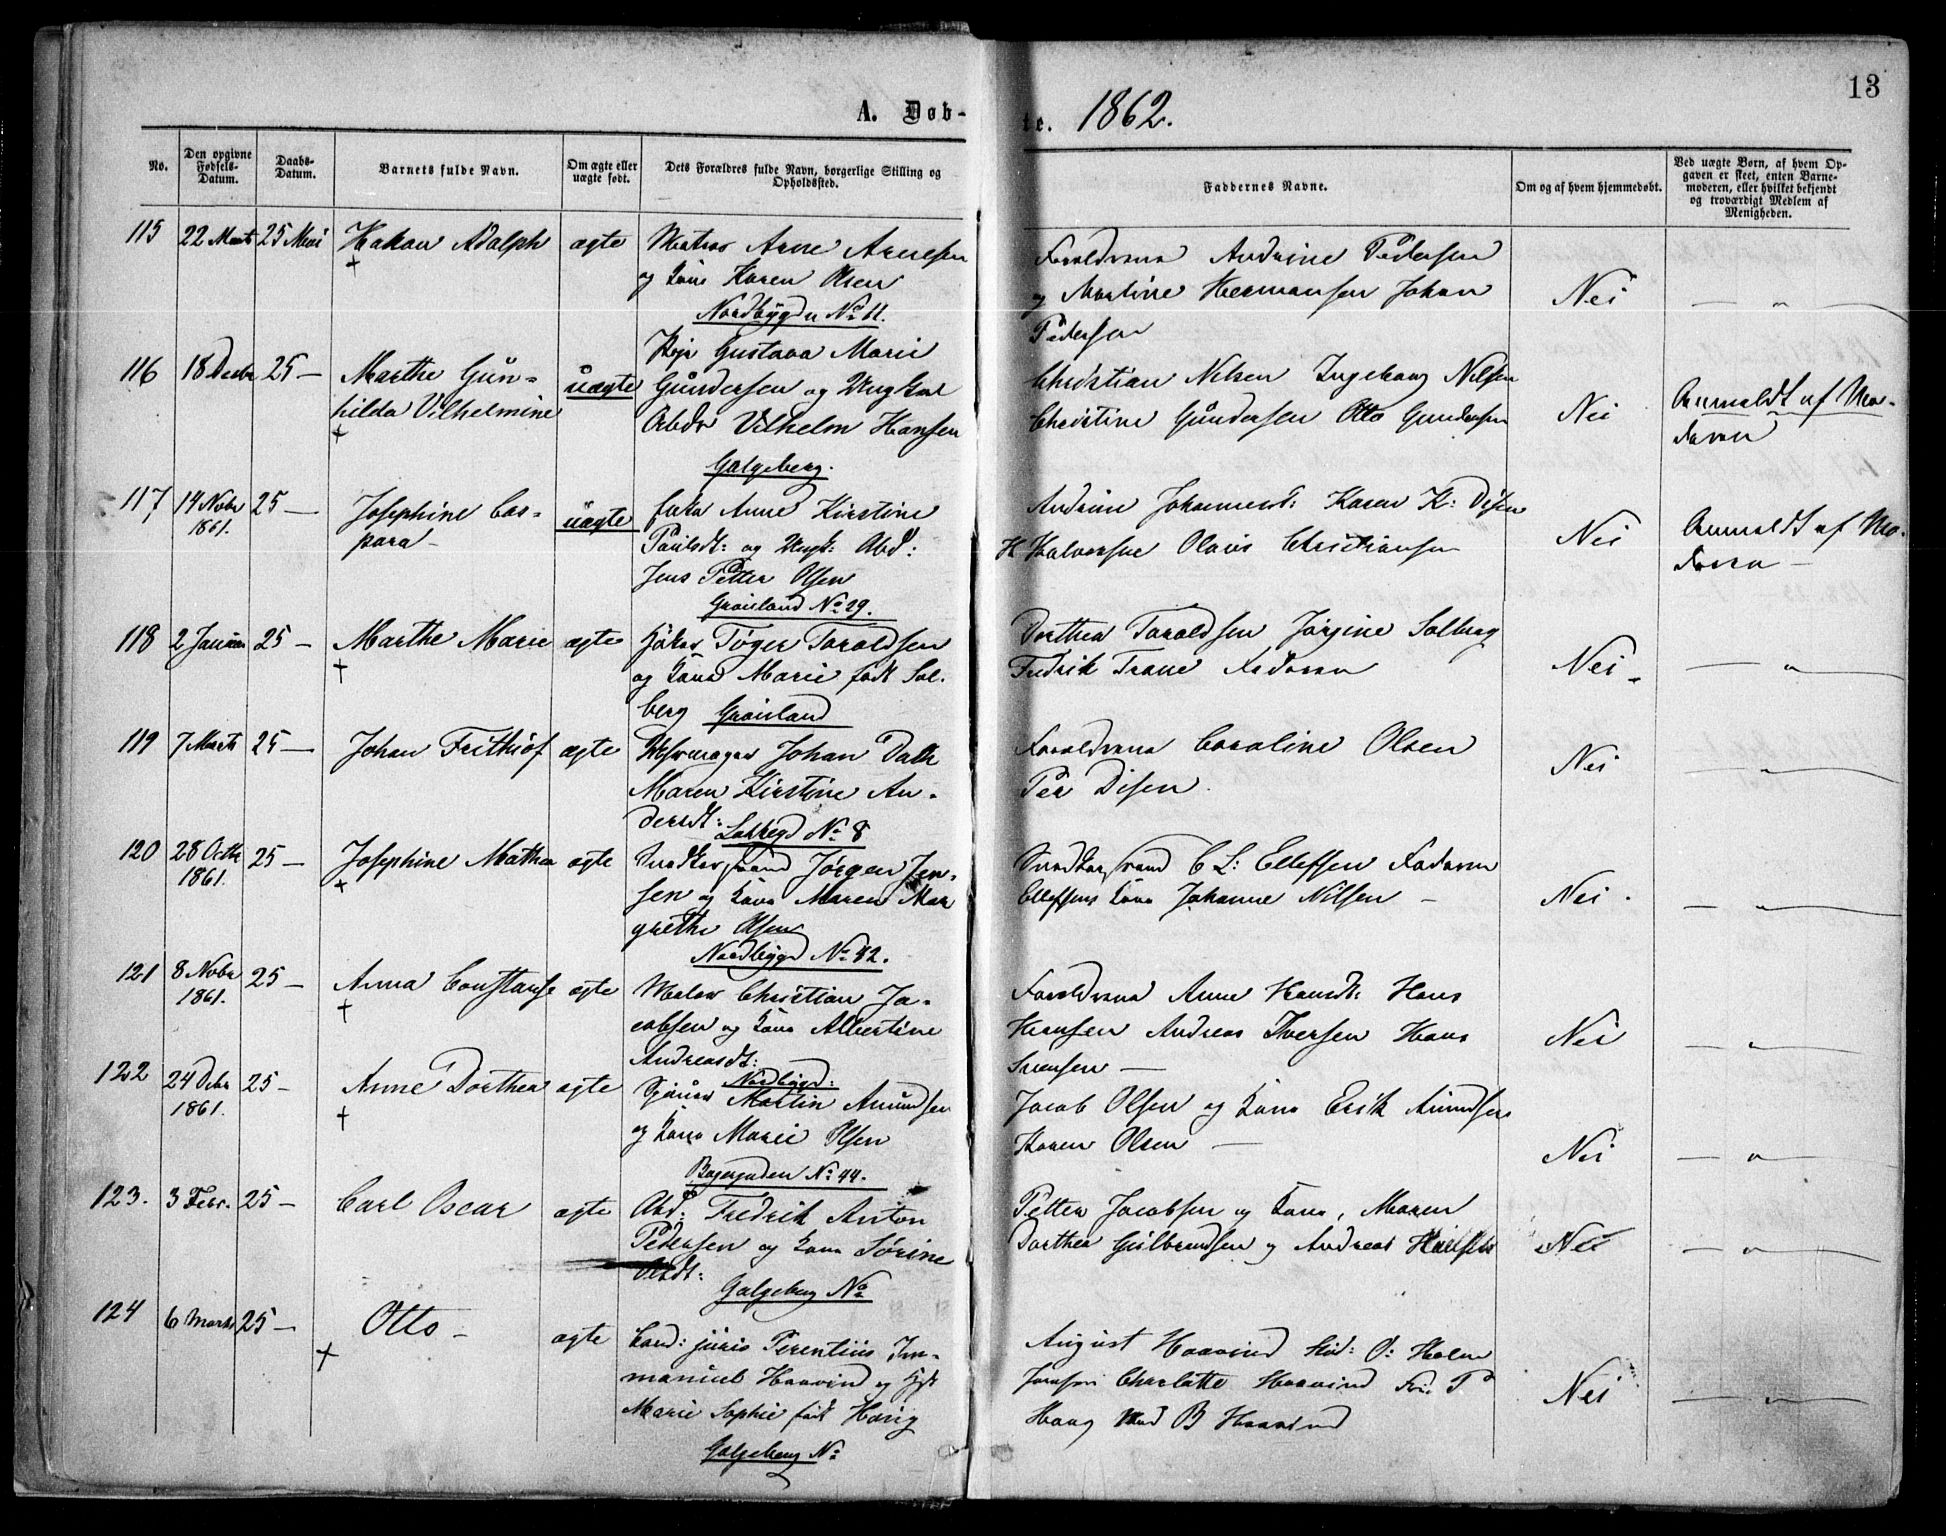 13
A. Døb-
te. 1862.
No.
Den opgivne
Fødsels-
Datum.
Daabs-
Datum.
Barnets fulde Navn.
Om ægte eller
uægte født.
Dets Forældres fulde Navn, borgerlige Stilling og
Opholdssted.
Faddernes Navne.
Om og af hvem hjemmedøbt.
Ved uægte Børn, af hvem Op-
gaven er skeet, enten Barne-
moderen, eller hvilket bekjendt
og troværdigt Medlem af
Menigheden.
115 22 Marts 25 Mai Hakon Adolph ægte Matros Arne Arnesen
og Kone Karen Olsen
Nordbygd No 11.
Forældrene Andrine Pedersen
og Martine Hermansen Johan
Pedersen
Nei — " —
116 18 Decbr 25 — Marthe Gün-
hilda Vilhelmine
uægte
Pige Gustava Marie
Gündersen og Ungkarl
Arbdr Vilhelm Hansen
Galgeberg.
Christian Nilsen Ingeborg Nilsen
Christine Gündersen Otto Gundersen
Nei
Anmeldt af Mo-
deren
117 14 Novbr
1861.
25 — Josephine Cas-
para —
uægte
Enke Anne Kirstine
Paulsdt: og Ungk: Arbd:
Jens Petter Olsen
Grønland No 29.
Andrine Johannesd: Karen K: Disen
H Halvorsen Olavis Christiansen
Nei
Anmeldt af Mo-
deren —
118 2 Januar 25 — Marthe Marie ægte Tøger Taraldsen
og Kone Marie født Sol-
berg Grønland
Dorthea Taraldsen Jørgine Solberg
Fredrik Trane Faderen
Nei — " —
119 7 Marts 25 — Johan Frithiof ægte Johan Dahl
Maren Kirstine An-
dersdt: Lakkegd No 8
Forældrene Caroline Olsen
Per Disen.
Nei — " —
120 28 Octbr
1861.
25 — Josephine Mathea ægte Snedkersvend Jørgen Jen-
sen og Kone Maren Mar
grethe Olsen
Nordbygd No 42.
Snedkersvend C L: Ellefsen Faderen
Ellefsens Kone Johanne Nilsen —
Nei — " —
121 8 Novbr
1861.
25 — Anna Constanse ægte Maler Christian Ja-
cobsen og Kone Albertine
Andreasdt:
Nordbygd:
Forældrene Anne Hansdt: Hans
Hansen Andreas Iversen Hans
Svensen —
Nei — " —
122 24 Debr
1861.
25 — Anne Dorthea ægte Martin Amündsen
og Kone Marie Olsen
Bagergaden No 44.
Jacob Olsen og Kone Erik Amundsen
Karen Olsen —
Nei — " —
123. 3 Febr. 25 — Carl Oscar ægte Abd: Fredrik Anton
Pedersen og Kone Sørine
Olsdt:
Galgeberg No
Petter Jacobsen og Kone, Maren
Dorthea Gulbrandsen og Andreas
Nei — " —
124 6 Marts 25 — Otto — ægte Cand: jüris Terentius Im-
manuel Haavind og Hst
Marie Sophie født
Galgeberg No
August Haavind Stud: O: Holm
Charlotte Haavind Frü P
Haag B Haavind
Nei — " —